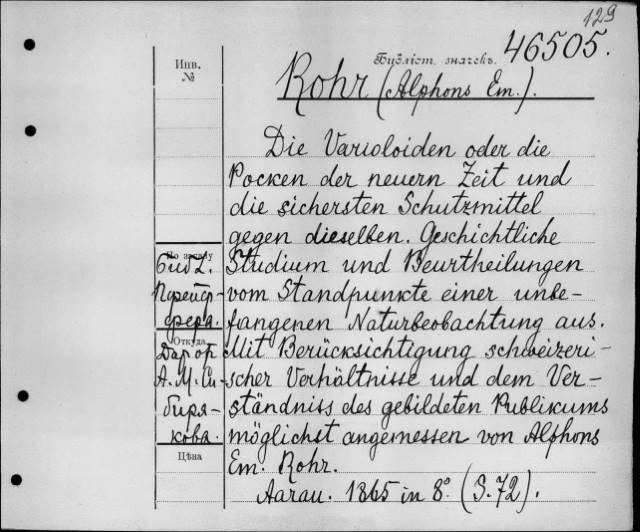 129
46505.
Инв.
№
Бібліот. значекъ.
Rohr (Alphons Em.).
Die Varioloiden oder die
Pocken der neuern Zeit und
die sichersten Schutzmittel
gegen dieselben. Geschichtliche
Studium und Beurtheilungen
vom Standpunkte einer unbe-
fangenen Naturbeobachtung aus.
Mit Berücksichtigung schweizeri-
scher Verhältnisse und dem Ver-
ständniss des gebildeten Publikums
möglichst angemessen von Alphons
Em. Rohr.
Aarau. 1865 in 8º. (S. 72).
По заказу
Откуда
Дар от
А. М. Си-
биря-
кова.
Цѣна